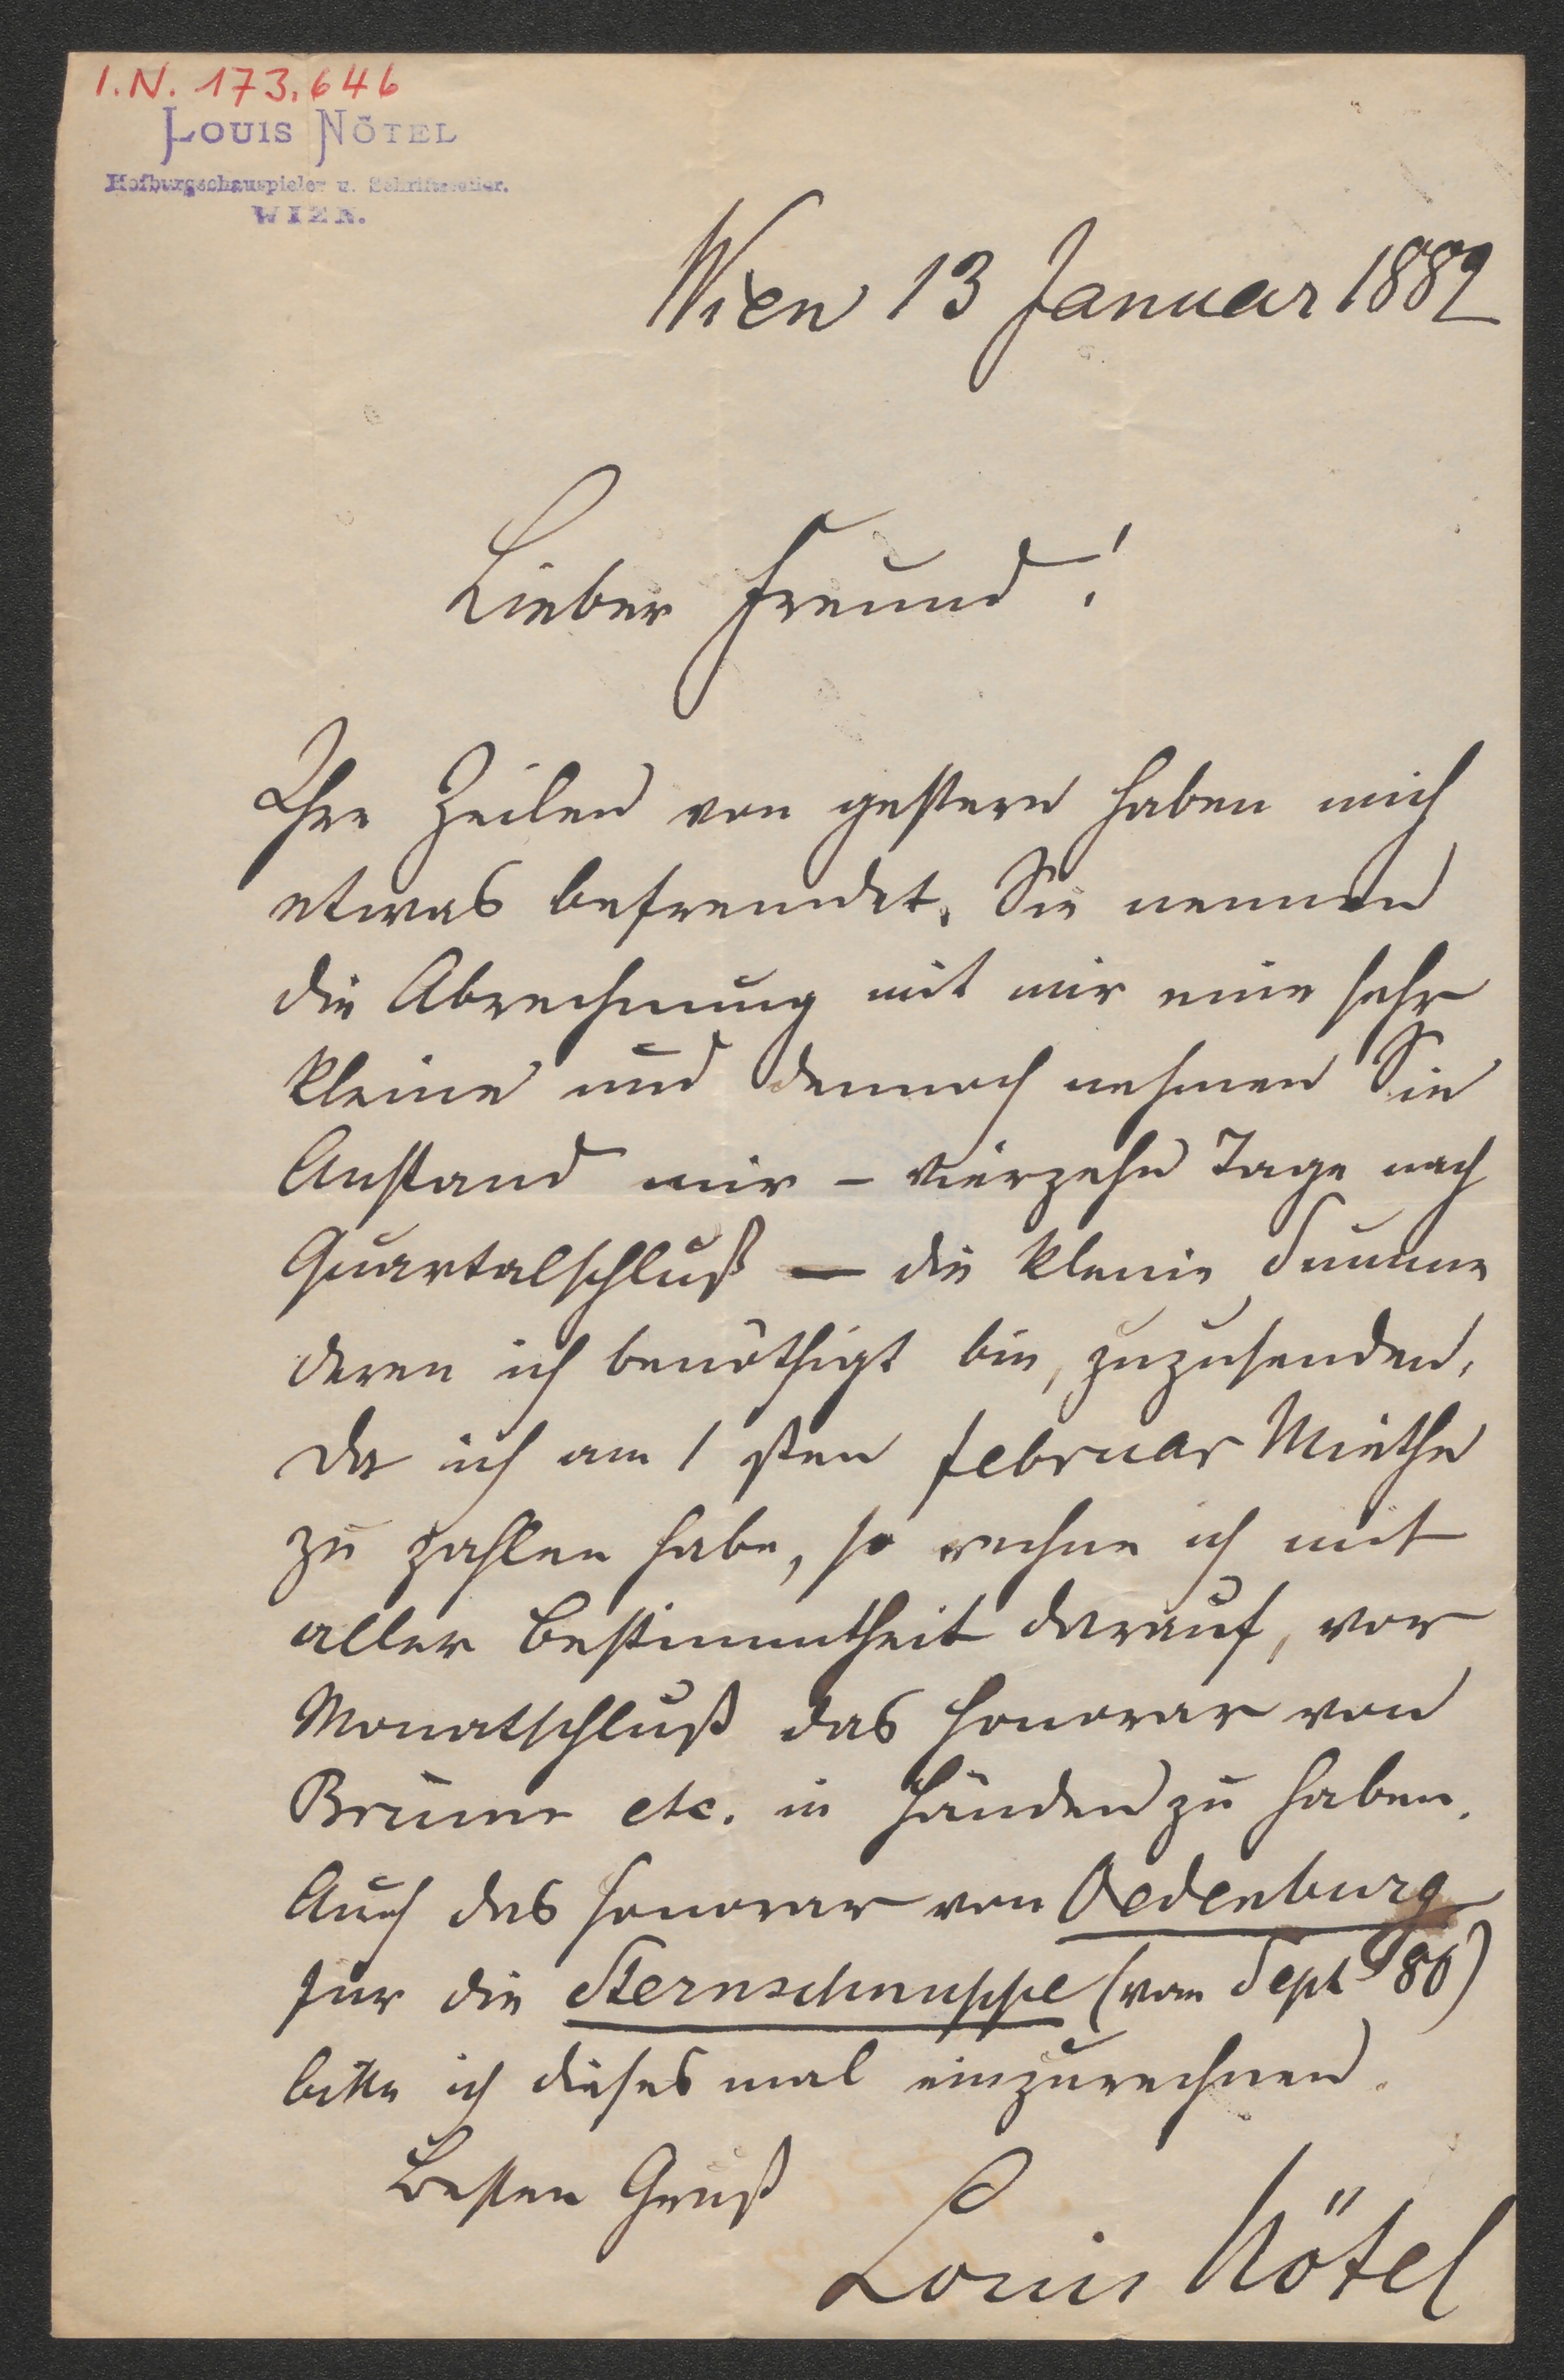 I.N. 173.646
LOUIS NÖTEL
Hofburgschauspieler u. Schriftsteller.
WIEN.
Wien 13 Januar 1882
Lieber Freund!
Ihre Zeilen von gestern haben mich
etwas befremdet. Sie nennen
die Abrechnung mit mir eine sehr
kleine und dennoch nehmen Sie
Anstand mir – vierzehn Tage nach
Quartalschluß — die kleine Summe
deren ich benöthigt bin, zuzusenden.
Da ich am 1 sten Februar Miethe
zu zahlen habe, so rechne ich mit
aller Bestimmtheit darauf, vor
Monatschluß das Honorar von
Brünn etc. in Händen zu haben.
Auch das Honorar von Oedenburg
für die Sternschnuppe (vom Sept 80)
bitte ich dieses mal einzurechnen.
Besten Gruß
Louis Nötel